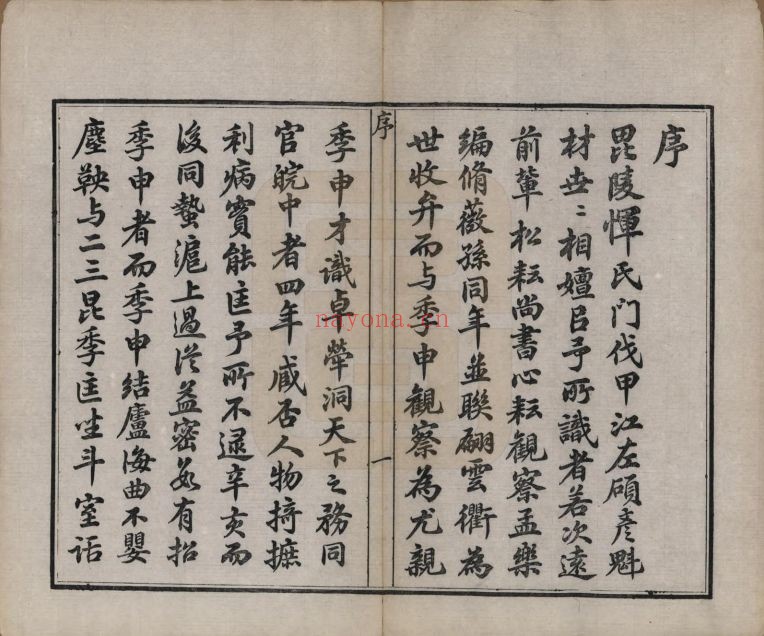 序
毘陵惲氏门伐甲江左碩彥魁
材世〻相嬗㠯予所識者若次遠
前輩松耘尚書心耘觀察孟樂
編脩薇孫同年並聯翩雲衢為
世收弁而与季申觀察為尤親
序
一
季申才識卓犖洞天下之務同
官皖中者四年臧否人物掎摭
利病實能匡予所不逮辛亥而
後同蟄滬上過從益密每有招
季申者而季申结廬海曲不嬰
塵鞅与二三昆季匡坐斗室话
nayona.cn